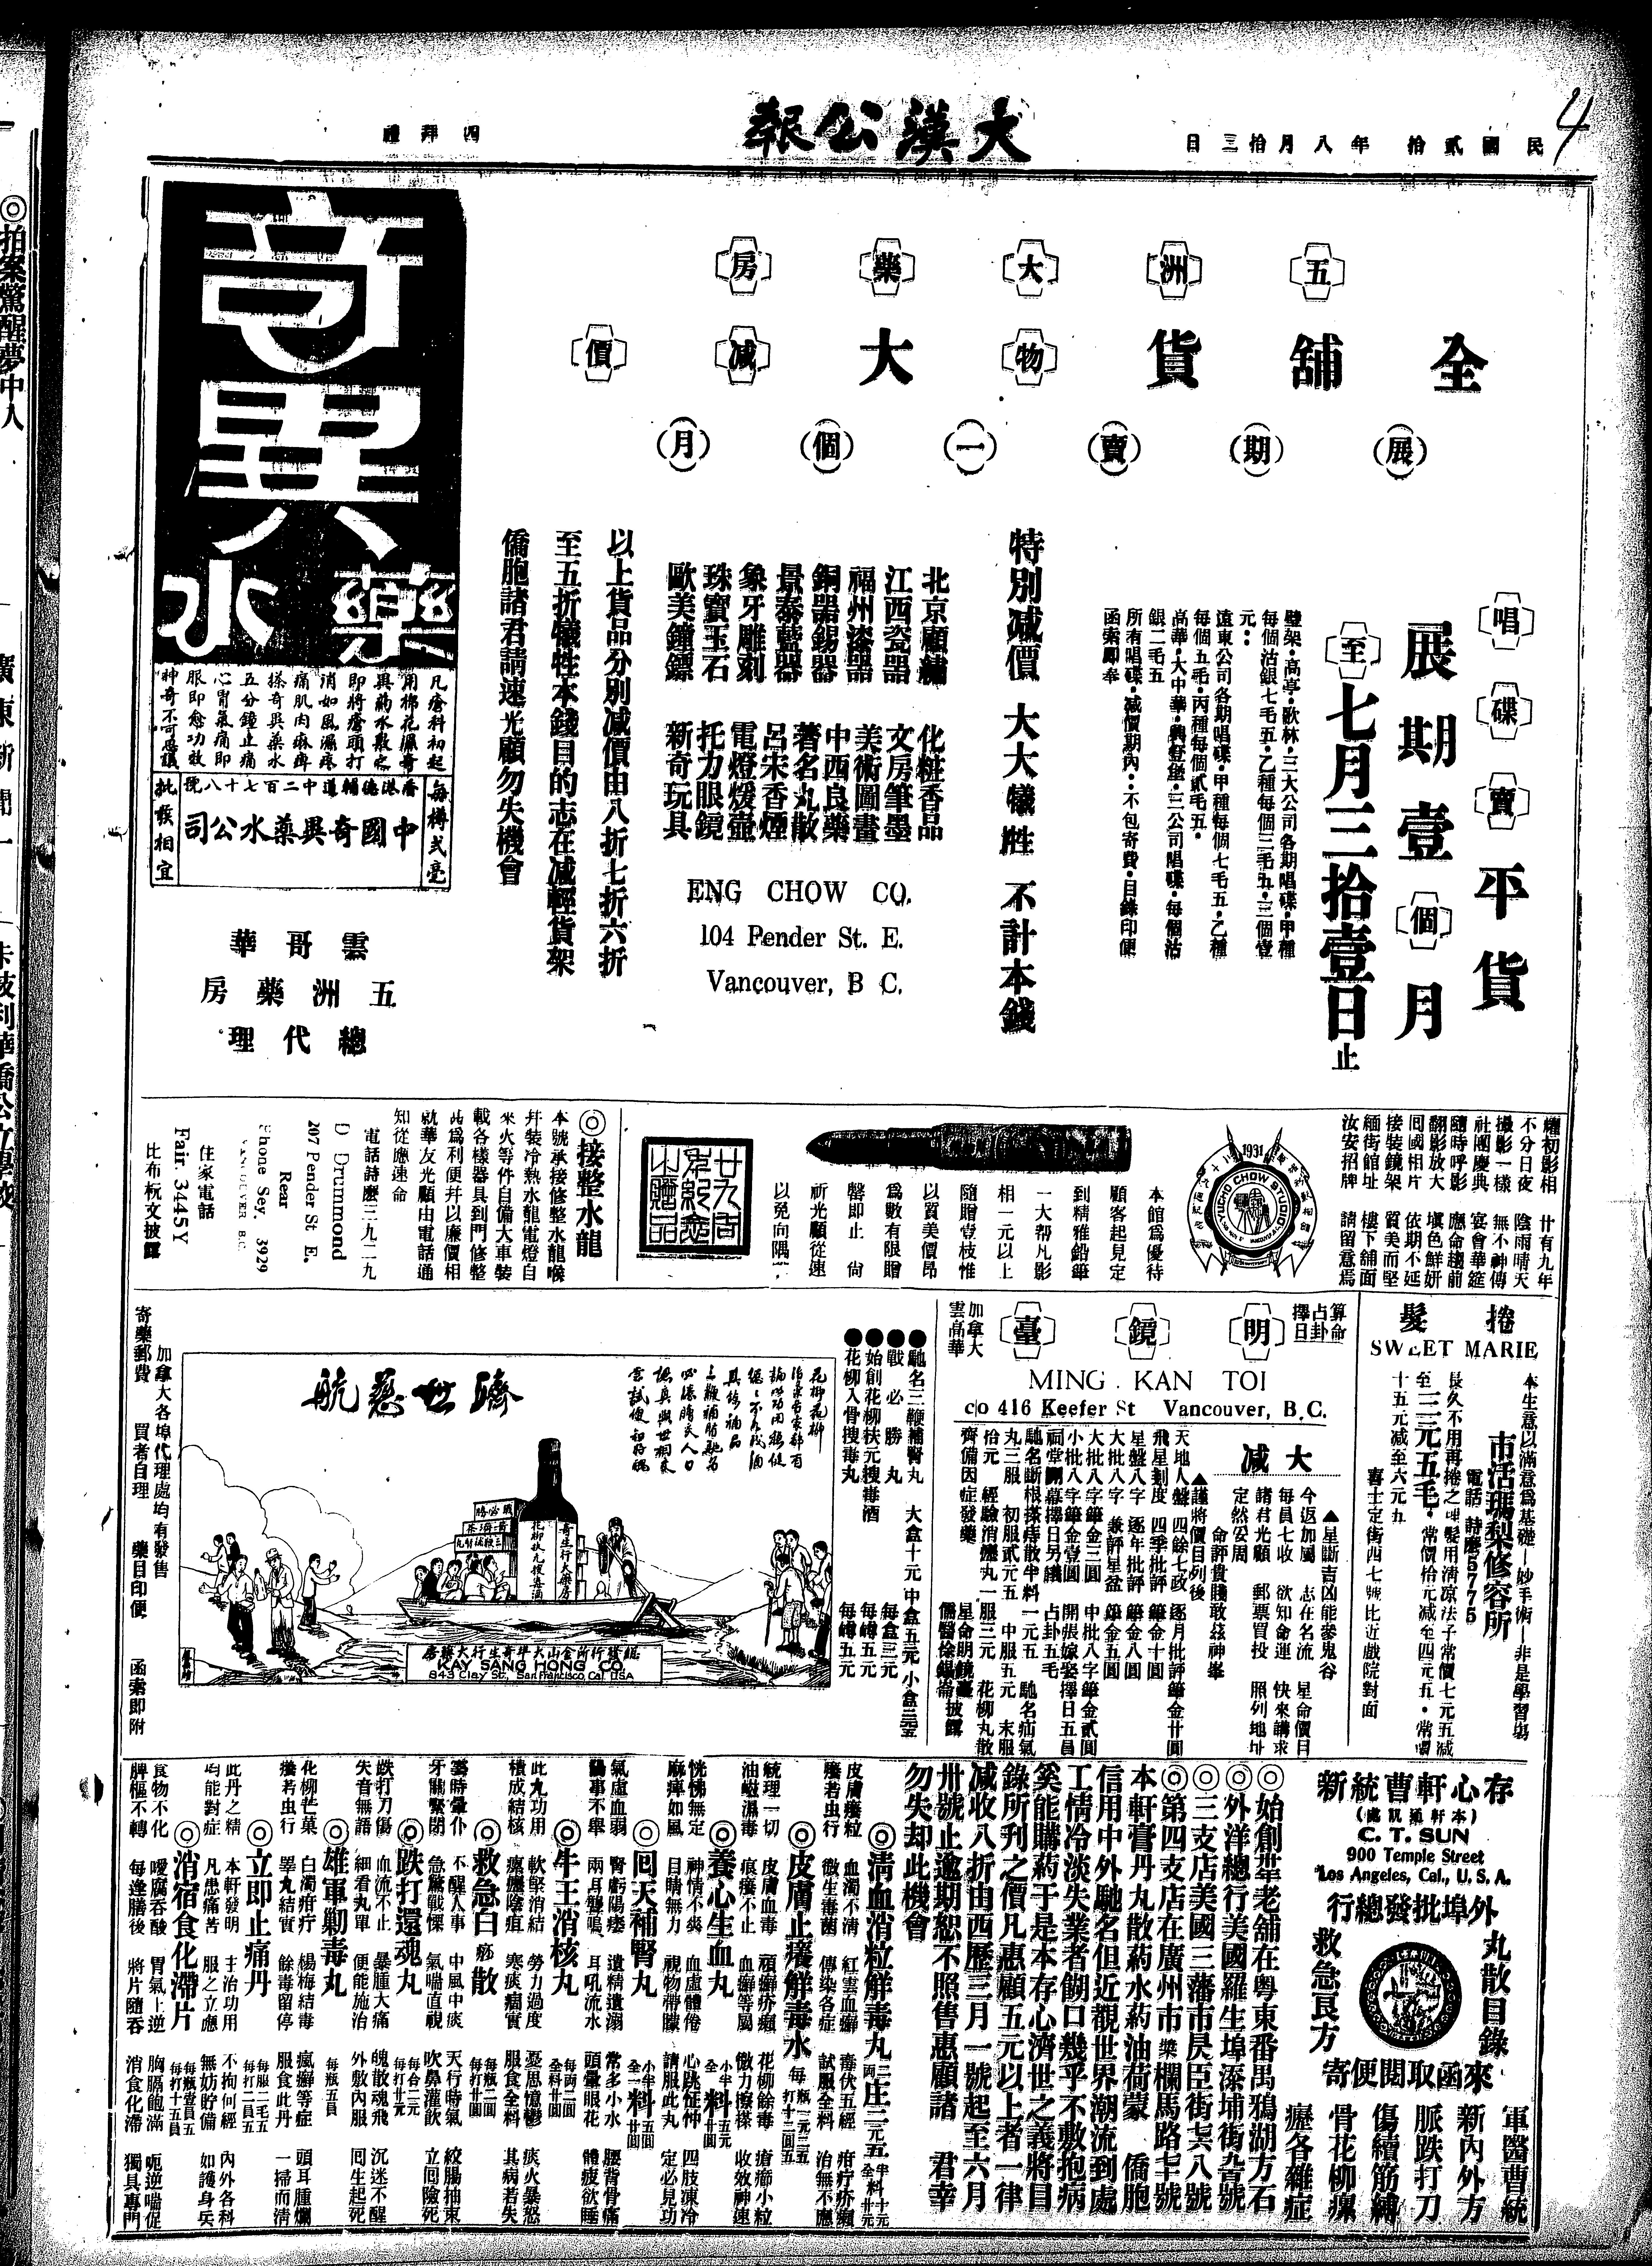 民國貳拾年八月拾三日
大漢公報
禮拜四
五洲大藥房
全舖貨物大減價
展期賣一個月
唱碟賣平貨
展期壹個月
至七月三拾壹日止
璧架·高亭·歌林·三大公司各期唱碟·甲種
每個沽銀七毛五·乙種每個三毛九·三個壹
元··
遠東公司各期唱碟·甲種每個七毛五·乙種
每個五毛·丙種每個貳毛五·
高華·大中華·興登堡·三公司唱碟·每個沽
銀二毛五
所有唱碟·減價期內·不包寄費·目錄印便
函索即奉
特別減價 大大犧牲 不計本錢
北京顧繡 化粧香品
江西瓷器 文房筆墨
福州漆器 美術圖畫
銅器錫器 中西良藥
景泰藍器 著名丸散
象牙雕刻 呂宋香煙
珠寶玉石 電燈煖壺
歐美鐘鏢 托力眼鏡
新奇玩具
ENG CHOW CO.
104 Pender St. E.
Vancouver, B C.
以上貨品分別減價由八折七折六折
至五折犧牲本錢目的志在減輕貨架
僑胞諸君請速光顧勿失機會
奇異藥水
凡瘡科初起
用棉花濕奇
異藥水敷之
即將瘡頭打
消如風濕疼
痛肌肉麻痺
搽奇異藥水
五分鐘止痛
心胃氣痛即
服即愈功效
神奇不可思議
每樽弍毫
香港德輔道中二百七十八號
中國奇異藥水公司
批發相宜
雲哥華
五洲藥房
總代理
耀初影相 廿有九年
不分日夜 陰雨晴天
攝影一樣 無不神傳
社團慶典 宴會華筵
隨時呼影 應命趨前
翻影放大 填色鮮妍
囘國相片 依期不延
接裝鏡架 質美而堅
緬街舘址 樓下舖面
汝安招牌 請留意焉
1931
YUCHO CHOW STUDIO
本館爲優待
顧客起見定
到精雅鉛筆
一大帮凡影
相一元以上
隨贈壹枝惟
以質美價昂
爲數有限贈
罄即止 尙
祈光顧從速
以免向隅
廿九周年紀念小贈品
◎接整水龍
本號承接修整水龍喉
并裝冷熱水龍電燈自
來火等件自備大車裝
載各樣器具到門修整
此爲利便幷以廉價相
就華友光顧由電話通
知從應速命
電話詩麽三九二九
D Drummond
207 Pender St E.
Rear
Phone Sey. 3929
VANCOUVER B.C.
住家電話
Fair. 3445Y
比布杬文披露
捲髮
SWEET MARIE
本生意以滿意爲基礎—妙手術—非是學習塲
市活瑪梨修容所
電話 詩麽5775
長久不用再捲之捲髮用清凉法子常價七元五減
至二元五毛·常價拾元減至四元五·常價
十五元減至六元九
喜士定街四七號比近戲院對面
算命
占卦
擇日
明鏡臺
加拿大
雲高華
MING KAN TOI
c|o 416 Keefer St Vancouver, B.C.
大減
▲星斷吉凶能參鬼谷
▲命評貴賤敢茲神峯
今返加屬 志在名流 星命價目
每員七收 欲知命運 快來講求
諸君光顧 郵票買投 照列地址
定然安周
▲謹將價目列後
天地人盤 四餘七政 逐月批評 筆金廿圓
飛星剗度 四季批評 筆金十圓
星盤八字 逐年批評 筆金八圓
大批八字 兼評星盆 筆金五圓
大批八字筆金三圓 中批八字筆金貳圓
小批八字筆金壹圓 開張嫁娶擇日五員
祠堂開幕擇日另議 占卦五毛
馳名斷根搽痔散半料一元五 馳名疝氣
丸三服 初服貳元五 中服五元 末服
拾元 經驗消癦丸一服三元 花柳丸散
齊備因症發藥
星命明鏡臺
儒醫徐錫崙披露
●馳名三鞭補腎丸 大盒十元 中盒五元 小盒三元
●戰必勝丸 每盒三元
●始創花柳扶元搜毒酒 每罇五元
●花柳入骨搜毒丸 每罇五元
濟世慈航
戰必勝
三鞭補腎丸
奇生行大藥房
花柳扶元搜毒酒
總發行所金山大埠奇生行大藥房
KAY SANG HONG CO
843 Clay St., San Francisco, Cal. USA
加拿大各埠代理處均有發售
寄藥郵費 買者自理 藥目印便 函索即附
存心軒曹統新
(本軒通訊處)
C. T. SUN
900 Temple Street
Los Angeles, Cal., U. S. A.
外埠批發總行
丸散目錄
救急良方
來函取閱便寄
軍醫曹統
新內外方
脈跌打刀
傷續筋縛
骨花柳瘰
癧各雜症
◎始創革老舖在粤東番禺鴉湖方石
◎外洋總行美國羅生埠添埔街九百號
◎三支店美國三藩市昃臣街七六八號
◎第四支店在廣州市 欒欄馬路七十號
本軒膏丹丸散葯水葯油荷蒙 僑胞
信用中外馳名但近觀世界潮流到處
工情冷淡失業者餬口幾乎不敷抱病
奚能購葯于是本存心濟世之義將目
錄所刋之價凡惠顧五元以上者一律
減收八折由西歷三月一號起至六月
卅號止逾期恕不照售惠顧諸 君幸
勿失却此機會
◎清血消粒解毒丸
皮膚癢粒 血濁不清 紅雲血癬 毒伏五經 疳疔疥癩
癢若虫行 微生毒菌 傳染各症 試服全料 治無不應
◎皮膚止癢解毒水
統理一切 皮膚血毒 頑癬疥癩 花柳餘毒 瘡癤小粒
油磁濕毒 痕癢不止 血癬等屬 微力擦搽 收效神速
◎養心生血丸
恍惚無定 神情不爽 血虛體倦 心跳怔忡 四肢凍冷
麻痺如風 目睛無力 視物帶朦 請服此丸 定必見功
◎囘天補腎丸
氣虛血弱 腎虧陽痿 遺精遺溺 常多小水 腰背骨痛
陽事不舉 兩耳聾鳴 耳吼流水 頭暈眼花 體疲欲睡
◎牛王消核丸
此丸功用 軟堅消結 勞力過度 憂思憶鬱 痰火暴怒
積成結核 瘰癧陰疽 寒痰痼實 服食全料 其病若失
◎救急白痧散
霎時暈仆 不醒人事 中風中痰 天行時氣 絞腸抽東
牙關緊閉 急驚戰慄 氣喘直視 吹鼻灌飲 立囘險死
◎跌打還魂丸
跌打刀傷 血流不止 暴腫大痛 魄散魂飛 沉迷不醒
失音無語 細看丸單 便能施治 外敷內服 囘生起死
◎雄軍剿毒丸
花柳芒菓 白濁疳疔 楊梅結毒 瘋癲等症 頭耳腫爛
癢若虫行 睪丸結實 餘毒留停 服食此丹 一掃而清
◎立即止痛丹
此丹之精 本軒發明 主治功用 不拘何經 內外各科
均能對症 凡患痛苦 服之立應 無妨貯備 如護身兵
◎消宿食化滯片
食物不化 噯腐吞酸 胃氣上逆 胸膈飽滿 呃逆喘促
脾樞不轉 每逢膳後 將片隨吞 消食化滯 獨具專門
◎拍案驚醒夢中人